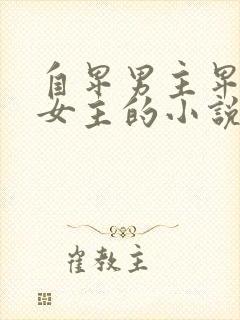 自卑男主卑
女主的小說
崔教主